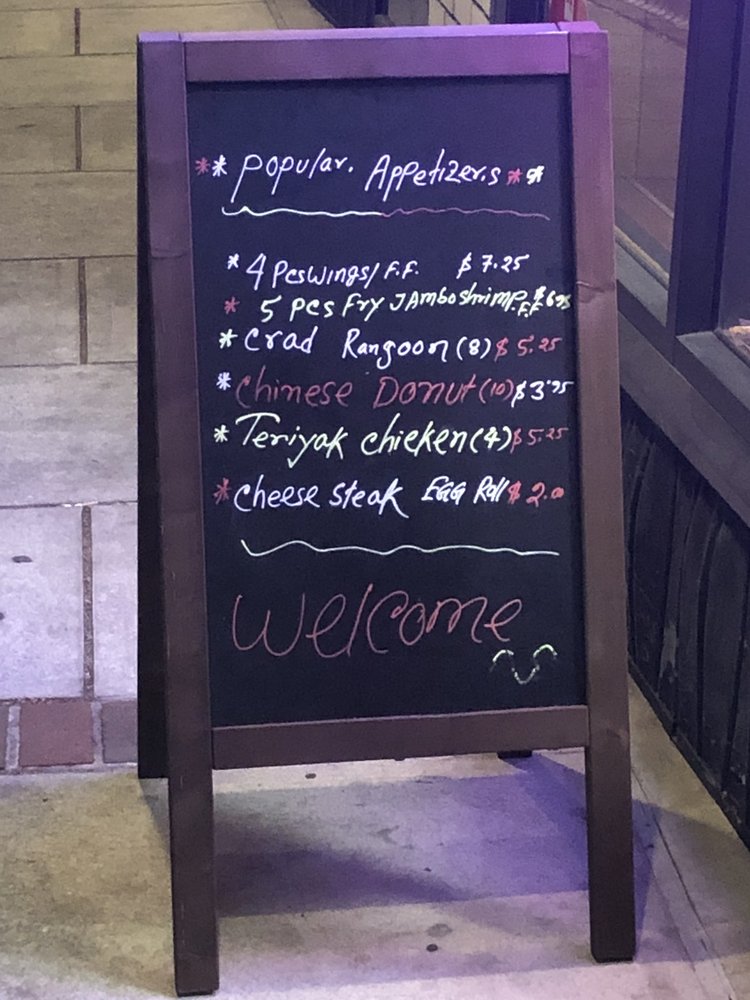 ** Popular. Appetizers **
* 4 PcsWings/F.F. $7.25
* 5 Pcs Fry JAmboshrimp. F.F $6.95
* Crad Rangoon (8) $5.25
* Chinese Donut (10) $3.95
* Teriyak chicken (4) $5.25
* Cheese Steak EGG Roll $2.00
Welcome